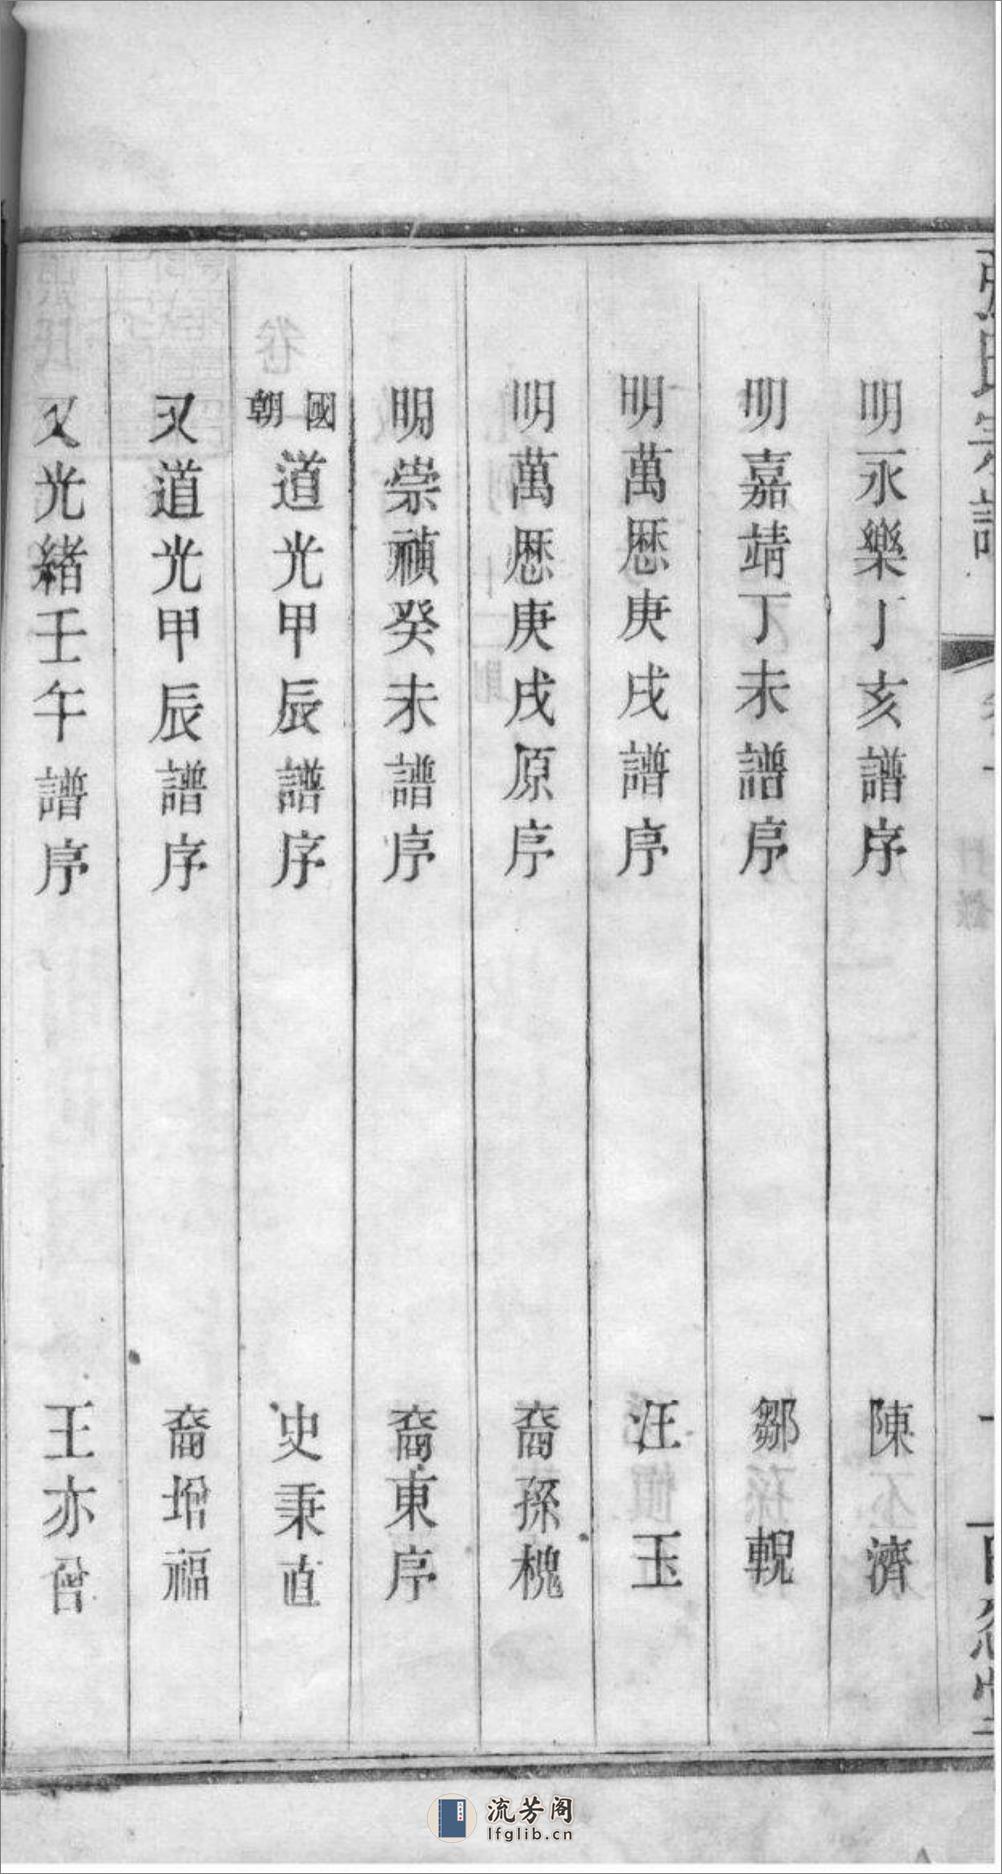 張氏宗譜 卷一 目錄 一 百忍堂
明永樂丁亥譜序 陳濟
明嘉靖丁未譜序 鄒孫輗
明萬厯庚戌譜序 汪玉
明萬厯庚戌原序 裔孫槐
明崇禎癸未譜序 裔東序
國朝道光甲辰譜序 史秉直
又道光甲辰譜序 裔增福
又光緒壬午譜序 王亦曾
流芳阁
lfglib.cn